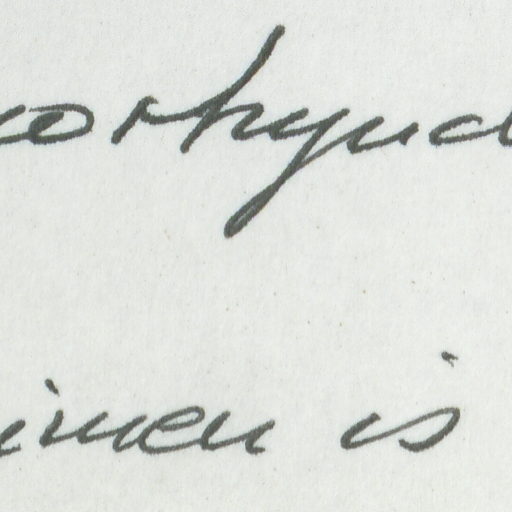 orhync
imen is